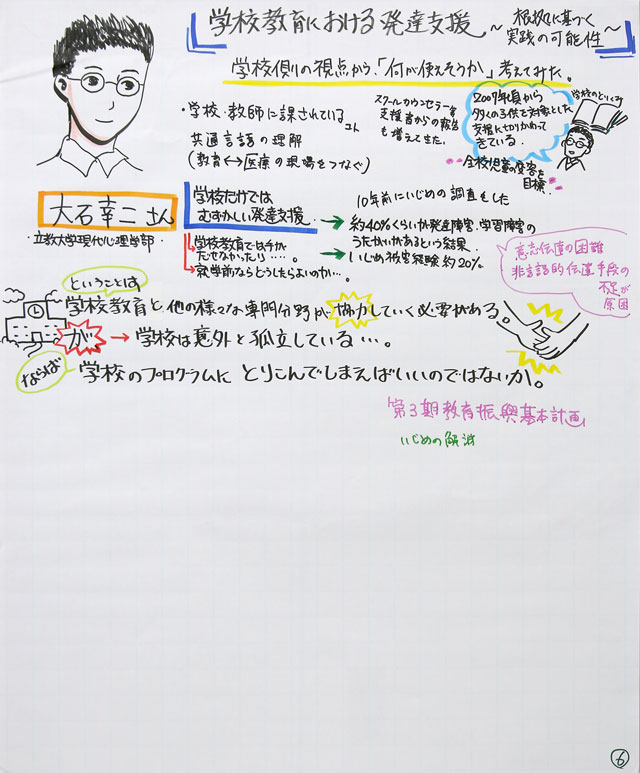 学校教育における発達支援
～根拠に基づく
実践の可能性～
学校側の視点から、「何が使えそうか」考えてみた。
・学校・教師に課されている
共通言語の理解
(教育↔医療の現場をつなぐ)
スクールカウンセラー等
支援者からの報告
も増えてきた。
2007年頃から
多くの子供を対象とした
支援に切りかわって
きている。
学校のとりくみ
全校児童の受容を
目標
大石幸二さん
・立教大学現代心理学部・
学校だけでは
むずかしい発達支援
→学校教育では手が
だせなかったり……。
→就学前ならどうしたらよいのか…。
10年前にいじめの調査をした
→約40%くらいが発達障害、学習障害の
うたがいがあるという結果。
→いじめ被害経験 約20%。
意志伝達の困難
非言語的伝達手段の
不足が
原因
ということは
学校教育と、他の様々な専門分野が協力していく必要がある。
が→学校は意外と孤立している…。
ならば
学校のプログラムに とりこんでしまえばいいのではないか。
第3期教育振興基本計画
いじめの解消
6